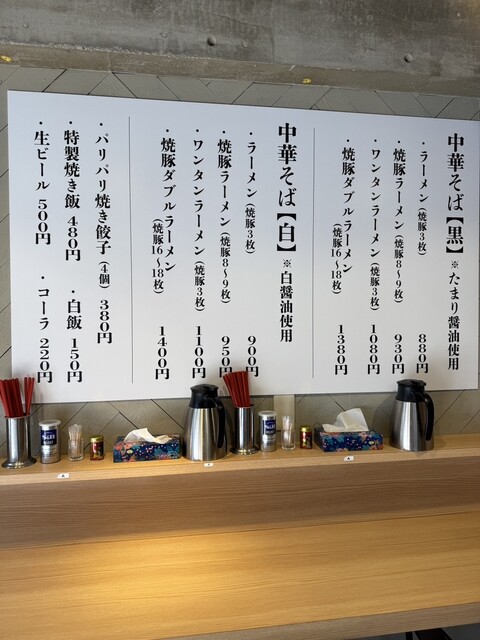 中華そば【黒】※たまり醤油使用
・ラーメン（焼豚3枚） 880円
・焼豚ラーメン（焼豚8～9枚） 930円
・ワンタンラーメン（焼豚3枚） 1080円
・焼豚ダブルラーメン（焼豚16～18枚） 1380円
中華そば【白】※白醤油使用
・ラーメン（焼豚3枚） 900円
・焼豚ラーメン（焼豚8～9枚） 950円
・ワンタンラーメン（焼豚3枚） 1100円
・焼豚ダブルラーメン（焼豚16～18枚） 1400円
・パリパリ焼き餃子（4個） 380円
・特製焼き飯 480円 ・白飯 150円
・生ビール 500円 ・コーラ 220円